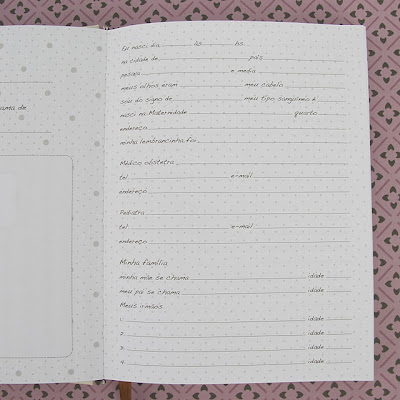 ama de
Eu nasci dia ____ às ____ hs.
na cidade de ____ país ____
pesava ____ e media ____
meus olhos eram ____ meu cabelo ____
sou do signo de ____ meu tipo sanguíneo é ____
nasci na Maternidade ____ quarto ____
endereço ____
minha lembrancinha foi ____
Médico obstetra ____
tel ____ e-mail ____
endereço ____
Pediatra ____
tel ____ e-mail ____
endereço ____
Minha família
minha mãe se chama ____ idade ____
meu pai se chama ____ idade ____
Meus irmãos
1. ____ idade ____
2. ____ idade ____
3. ____ idade ____
4. ____ idade ____